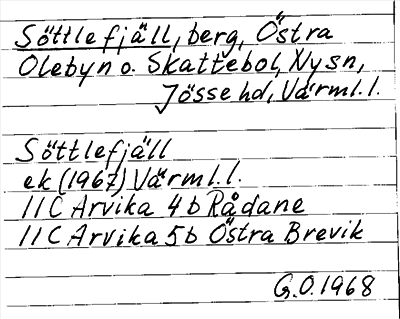 Söttlefjäll, berg, Östra
Olebyn o. Skattebol, Nysn,
Jösse hd, Värml.l.
Söttlefjäll
ek (1967) Värml.l.
11C Arvika 4b Rådane
11C Arvika 5b Östra Brevik
G.O.1968